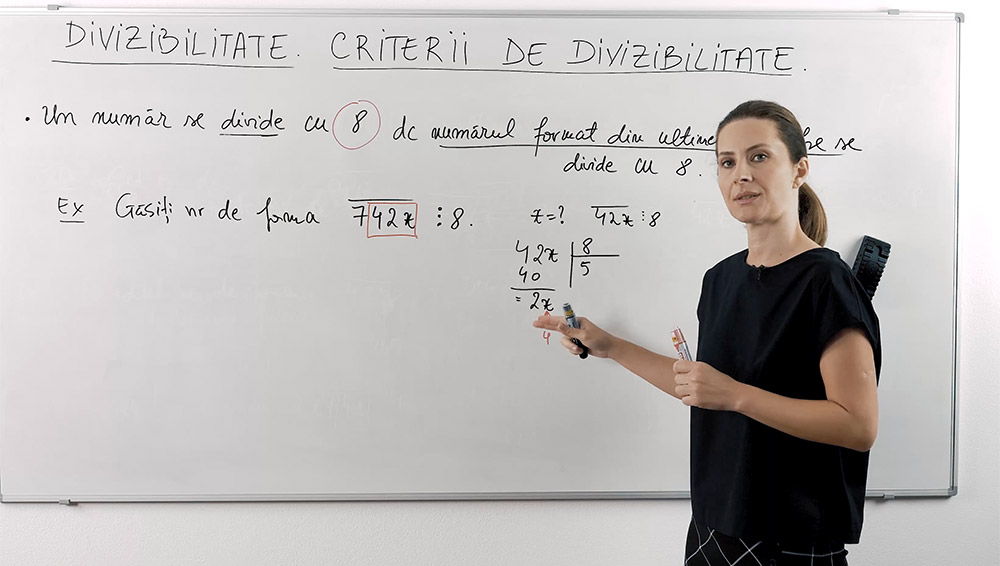 DIVIZIBILITATE. CRITERII DE DIVIZIBILITATE.
• Un număr se divide cu 8 dc numărul format din ultime se
divide cu 8.
Ex Găsiți nr de forma 742x ⋮ 8. x=? 42x ⋮ 8
42x | 8
40 5
= 2x
4